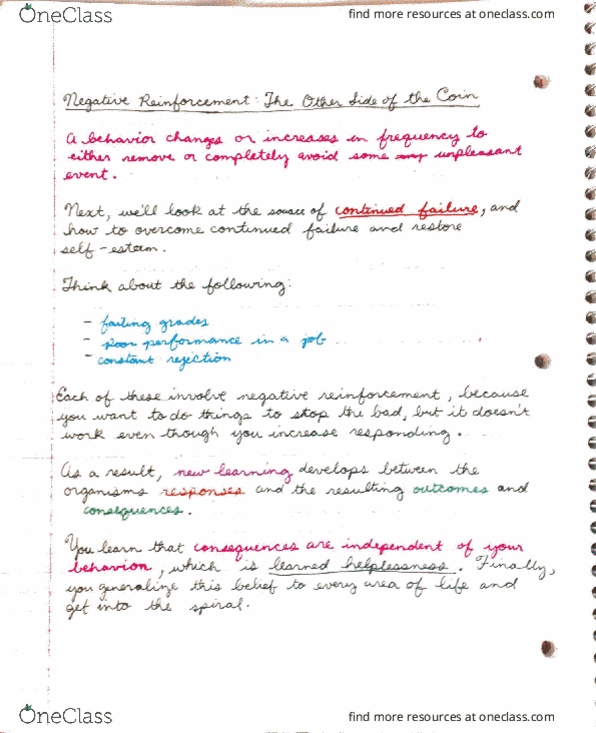 OneClass
find more resources at oneclass.com
Negative Reinforcement: The Other Side of the Coin
A behavior changes or increases in frequency to
either remove or completely avoid some unpleasant
event.
Next, we'll look at the source of continued failure, and
how to overcome continued failure and restore
self-esteem.
Think about the following:
- failing grades
- poor performance in a job
- constant rejection
Each of these involve negative reinforcement, because
you want to do things to stop the bad, but it doesn't
work even though you increase responding.
As a result, new learning develops between the
organisms responses and the resulting outcomes and
consequences.
You learn that consequences are independent of your
behavior, which is learned helplessness. Finally,
you generalize this belief to every area of life and
get into the spiral.
OneClass
find more resources at oneclass.com